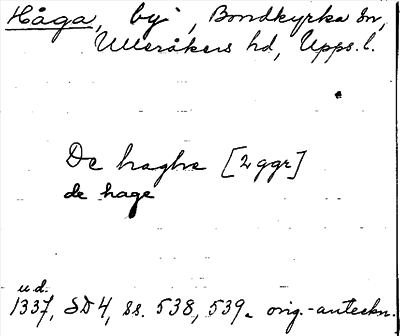 Håga, by, Bondkyrka sn,
Ulleråkers hd, Upps. l.
De haghe [2 ggr]
de hage
u.d.
1337, SD 4, ss. 538, 539. orig.-anteckn.